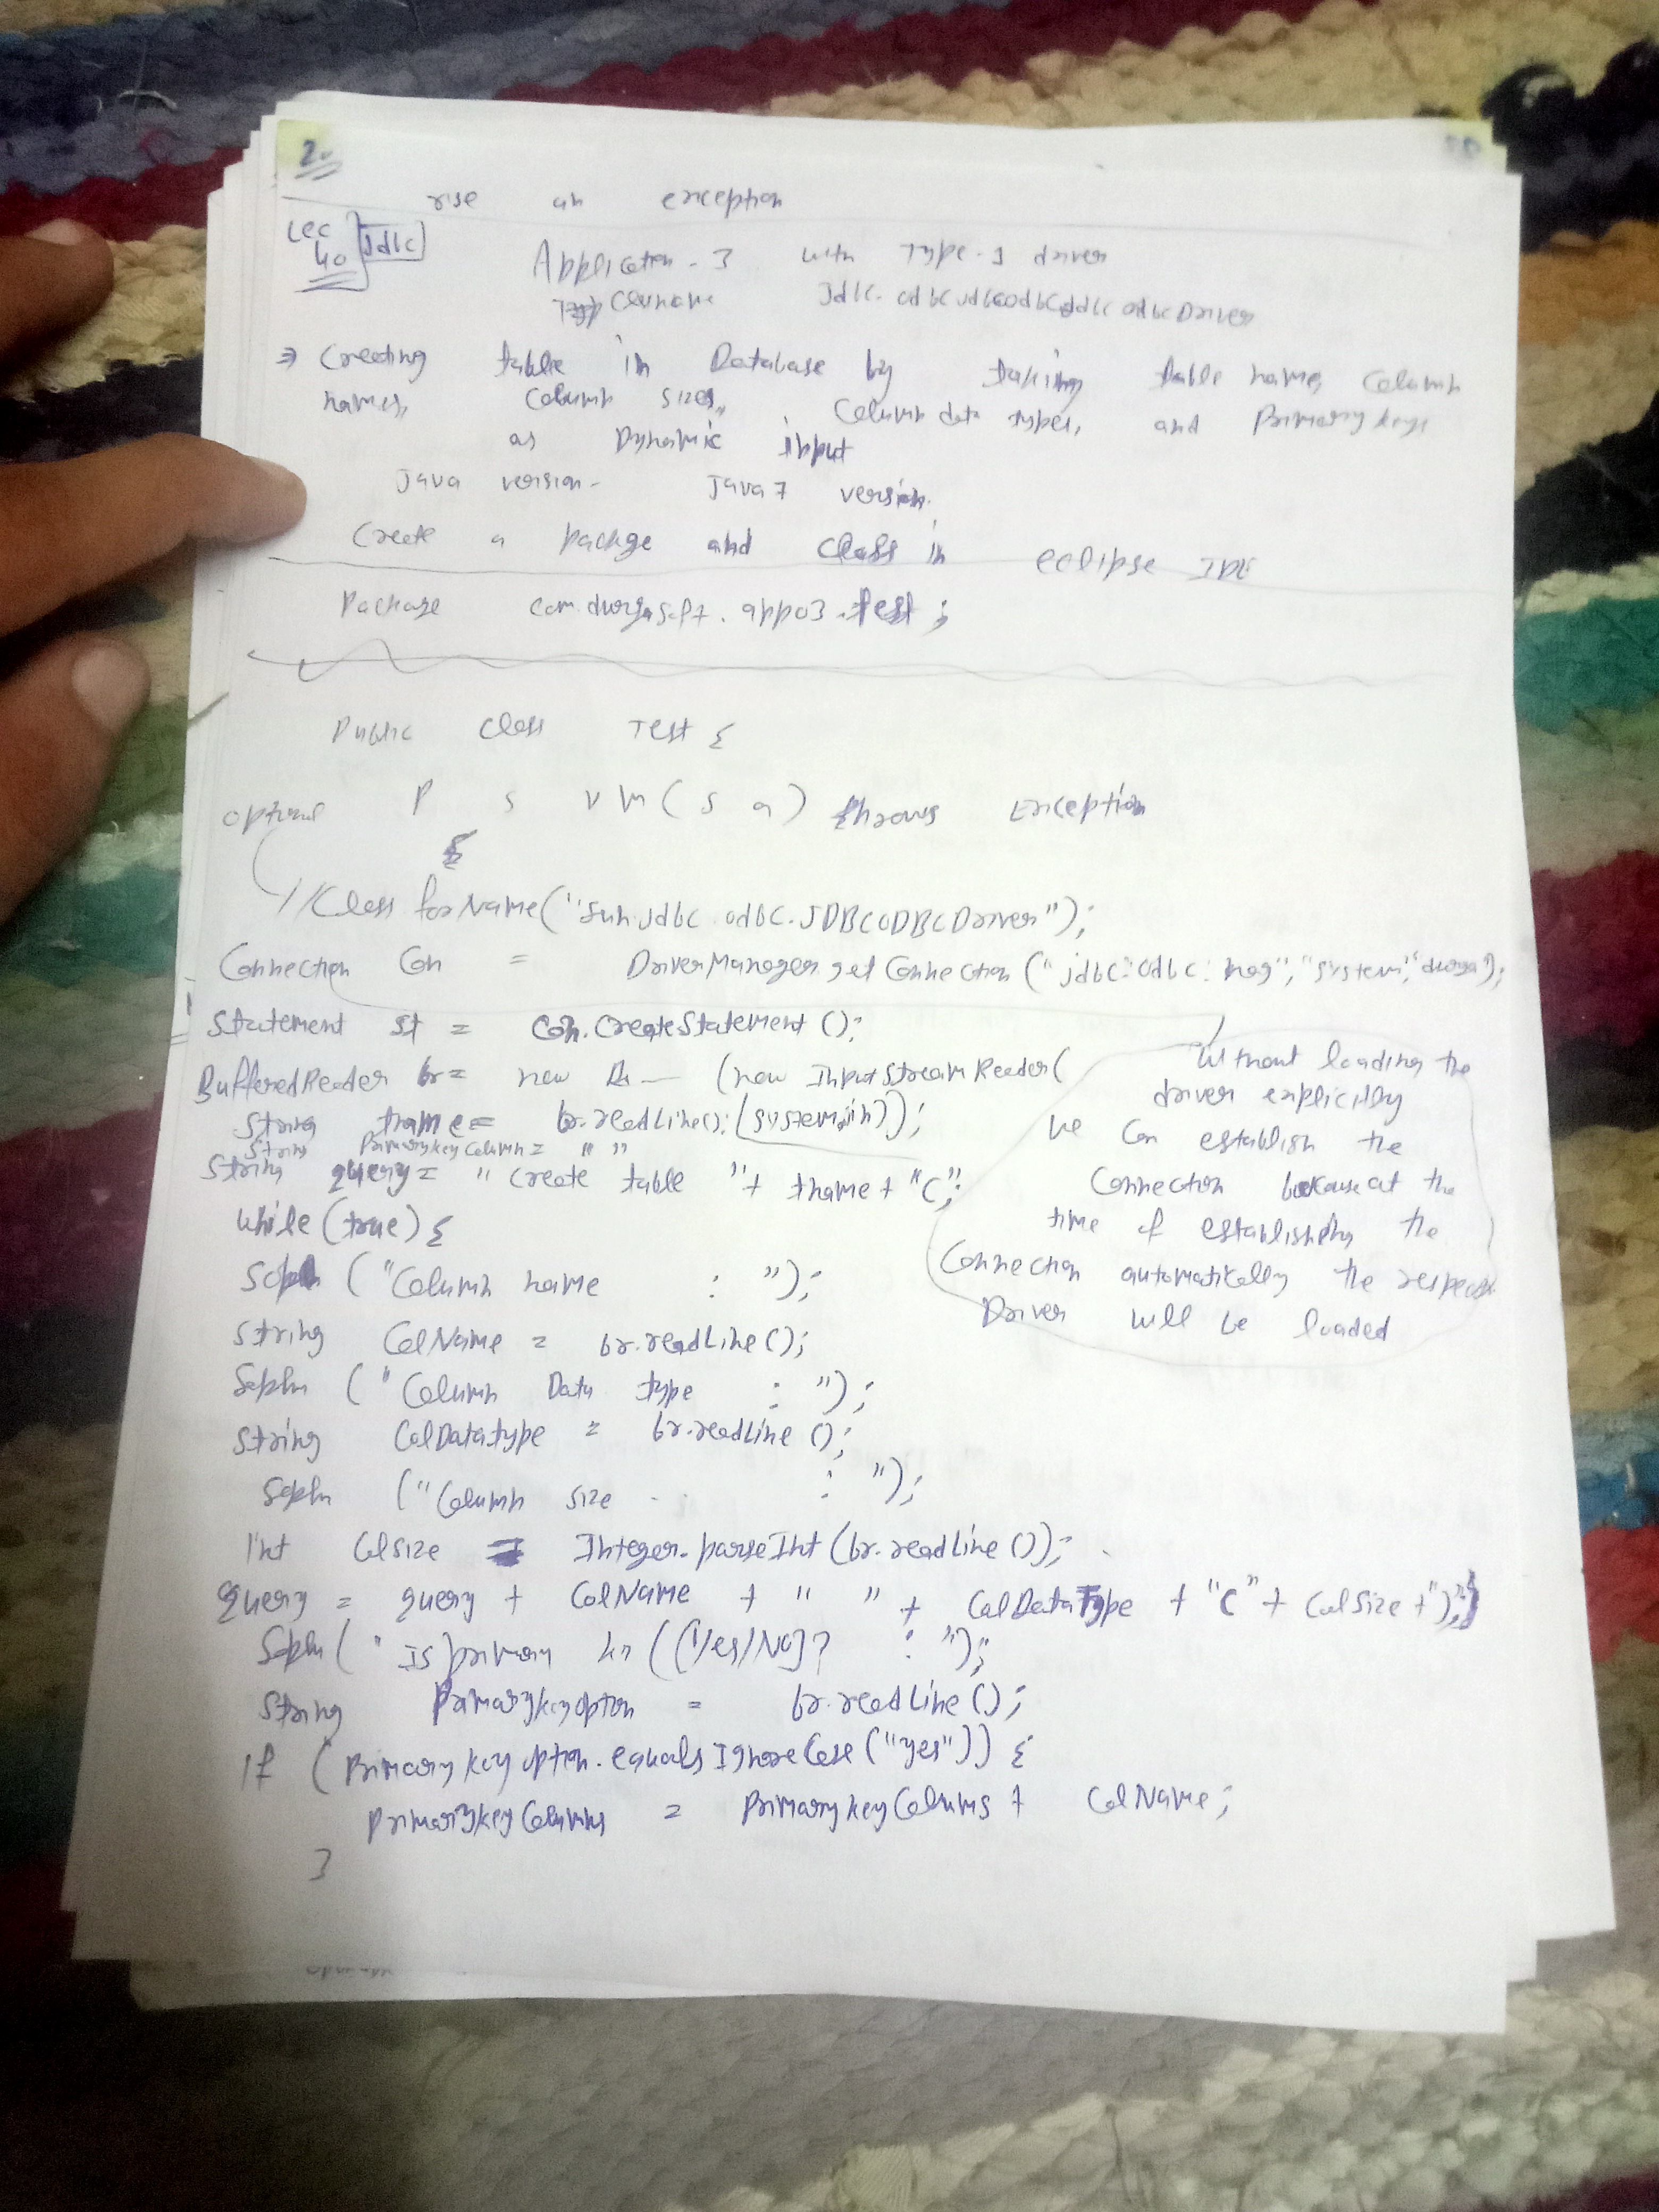 2.
rise an exception
Lec 40 Jdbc
Application - 3 with Type - 1 driver
⇒ Creating table in Database by taking table name, Column
names, Column sizes, Column data types, and Primary keys
as Dynamic input
Java version - Java 7 version.
Create a package and class in eclipse IDE
Package com.durgasoft.app03.test;
Public class Test {
P S V M ( S a ) throws Exception
optional
{
//Class forName("sun.jdbc.odbc.JDBCODBCDriver");
Connection Con = DriverManager.getConnection ("jdbc:odbc:nag","system","durga");
Statement st = Con.CreateStatement ();
BufferedReader br = new B — (new InputStreamReader(
String tname = br.readLine(); (system.in));
String PrimaryKeyColumn = " "
String query = " Create table "+ tname + "(";
while (true) {
Sopln ("Column name : ");
String ColName = br.readLine();
Sopln ("Column Data type : ");
String ColDatatype = br.readLine ();
Sopln ("Column size : ");
Int Colsize = Integer.parseInt (br.readLine ());
query = query + ColName + " " + ColDataType + "(" + ColSize + ");"}
Sopln ( " Is primary ([Yes/No]? : ");
String Primarykeyoption = br.readLine ();
If ( Primary key option.equalsIgnoreCase ("yes")) {
PrimarykeyColumns = PrimarykeyColumns + ColName;
}
Without loading the
driver explicitly
we Can establish the
Connection because at the
time of establishing the
Connection automatically the respective
Driver will be loaded